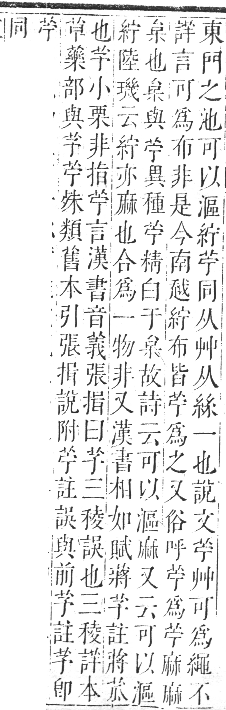 東門之池可以漚紵苧同从艸从絲一也說文苧艸可為繩不
詳言可為布非是今南越紵布皆苧為之又俗呼苧為苧麻麻
枲也枲與苧異種苧精白于枲故詩云可以漚麻又云可以漚
紵陸璣云紵亦麻也合為一物非又漢書相如賦蔣芧註蔣菰
也芧小栗非指苧言漢書音義張揖曰芧三稜誤也三稜詳本
草藥部與芧苧殊類舊本引張揖說附苧註誤與前芧註芧卽
苧
同